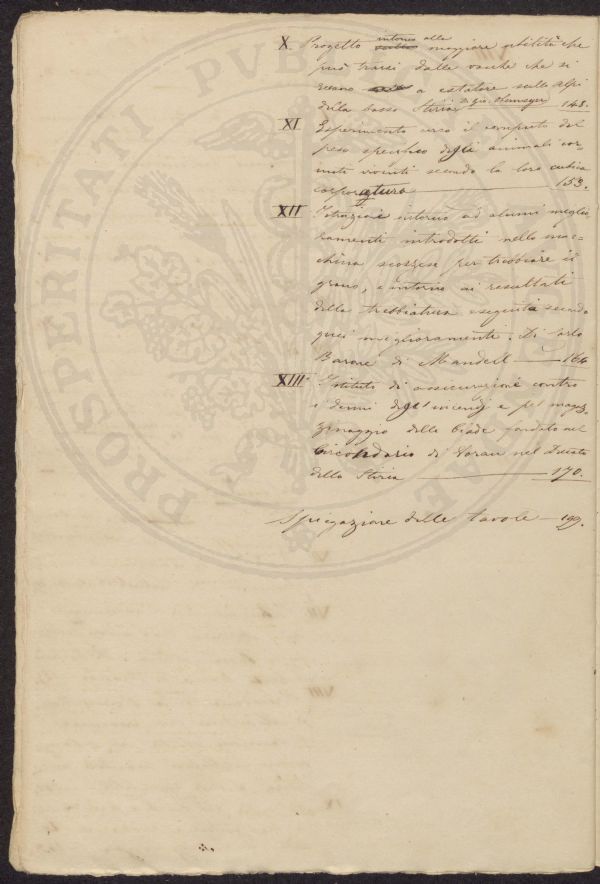 X. Progetto intorno alla maggiore utilità che
può trarsi dalle vacche che si
recano a estatare sulle alpi
della bassa Stiria di Gio. 148.
XI Esperimento circa il computo del
peso specifico degli animali cor-
nuti viventi secondo la loro cubica
corporatura 153.
XII Istruzione intorno ad alcuni meglio
ramenti introdotti nella mac-
china scozzese per trebbiare il
grano, e intorno ai resultati
della trebbiatura eseguita secondo
quei miglioramenti. Di Carlo
Barone di Mandell 164
XIII Istituto di assicurazione contro
i danni degl'incendj e pel magaz-
zinaggio delle biade fondato nel
Circondario di Vorau nel Ducato
della Stiria 170.
Spiegazione delle tavole 199.
PROSPERITATI PVB
AE